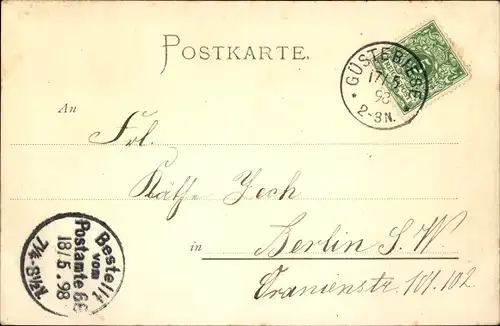 POSTKARTE.
GÜSTEBIESE
17/5
98
2-3N.
An
Frl.
Käthe Zech
in Berlin S.W.
Oranienstr. 101.102
Bestellt
vom
Postamte
18/5.98
7¼-8½V.